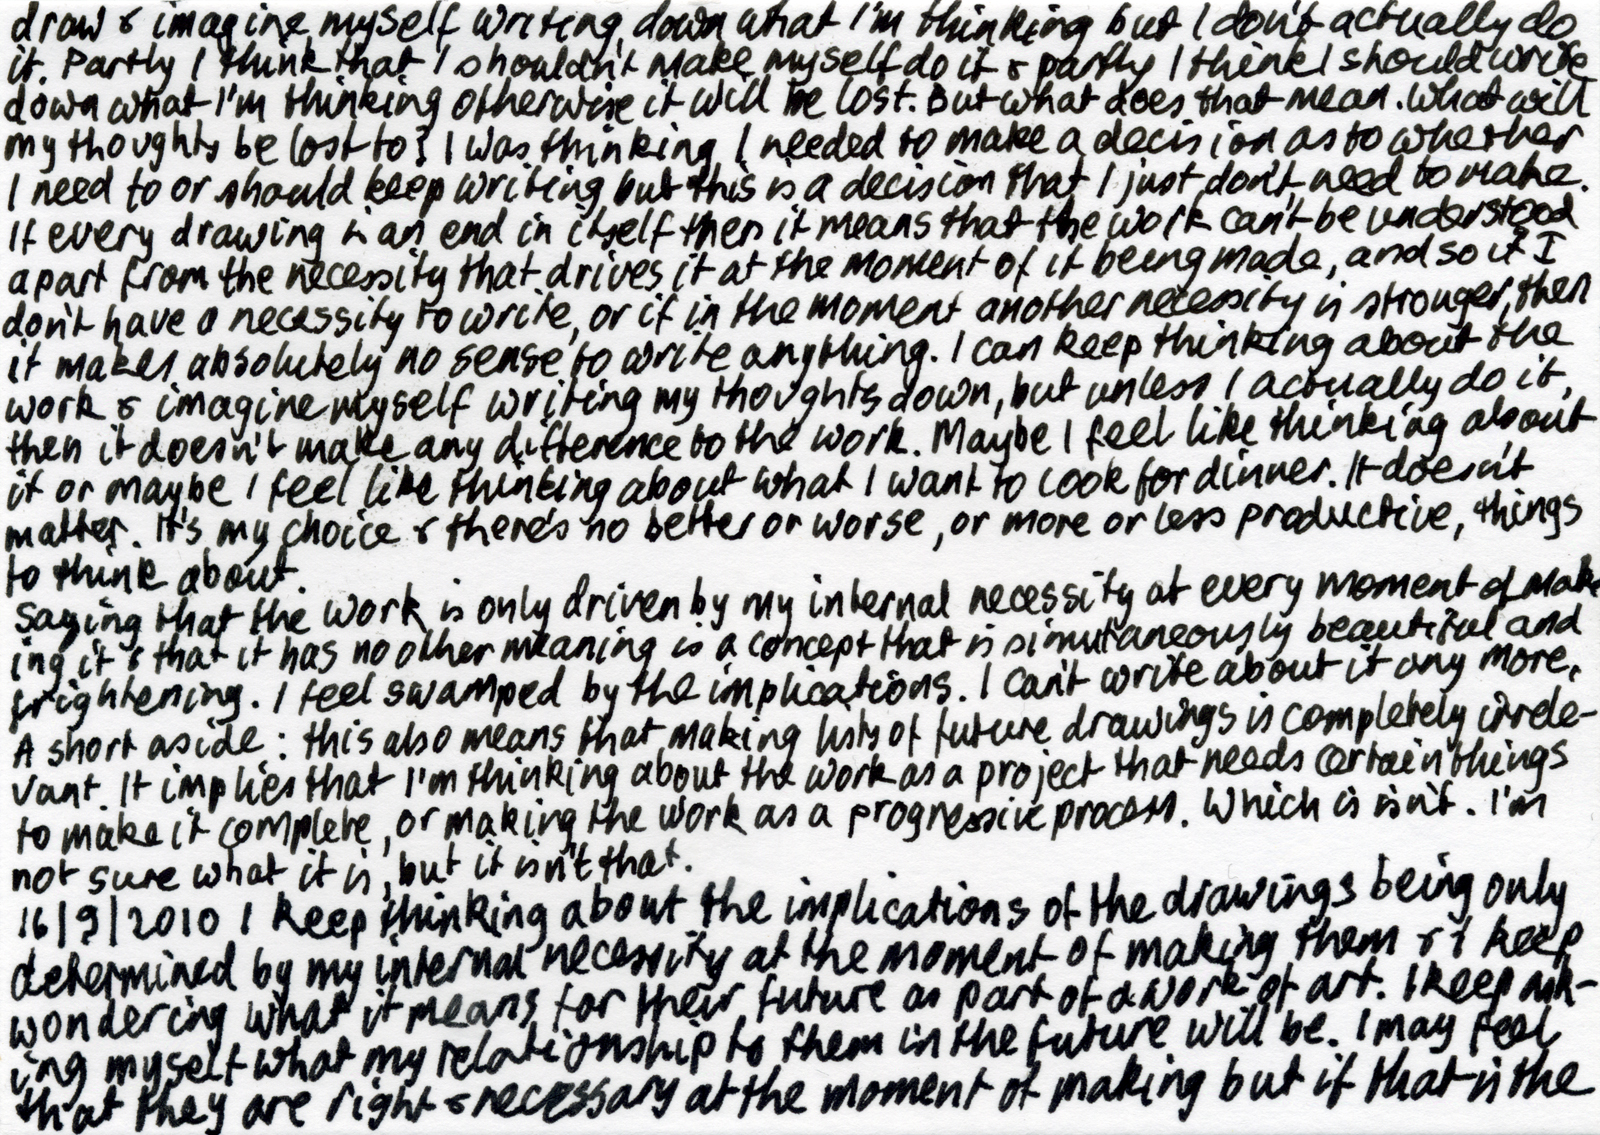 draw & imagine myself writing down what I'm thinking but I don't actually do
it. Partly I think that I shouldn't make myself do it & partly I think I should write
down what I'm thinking otherwise it will be lost. But what does that mean. What will
my thoughts be lost to? I was thinking I needed to make a decision as to whether
I need to or should keep writing but this is a decision that I just don't need to make.
If every drawing is an end in itself then it means that the work can't be understood
apart from the necessity that drives it at the moment of it being made, and so if I
don't have a necessity to write, or if in the moment another necessity is stronger, then
it makes absolutely no sense to write anything. I can keep thinking about the
work & imagine myself writing my thoughts down, but unless I actually do it,
then it doesn't make any difference to the work. Maybe I feel like thinking about
it or maybe I feel like thinking about what I want to cook for dinner. It doesn't
matter. It's my choice & there's no better or worse, or more or less productive, things
to think about.
Saying that the work is only driven by my internal necessity at every moment of mak-
ing it & that it has no other meaning is a concept that is simultaneously beautiful and
frightening. I feel swamped by the implications. I can't write about it any more.
A short aside: this also means that making lists of future drawings is completely irrele-
vant. It implies that I'm thinking about the work as a project that needs certain things
to make it complete, or making the work as a progressive process. Which is isn't. I'm
not sure what it is, but it isn't that.
16/9/2010 I keep thinking about the implications of the drawings being only
determined by my internal necessity at the moment of making them & I keep
wondering what it means for their future as part of a work of art. I keep ask-
ing myself what my relationship to them in the future will be. I may feel
that they are right & necessary at the moment of making but if that is the